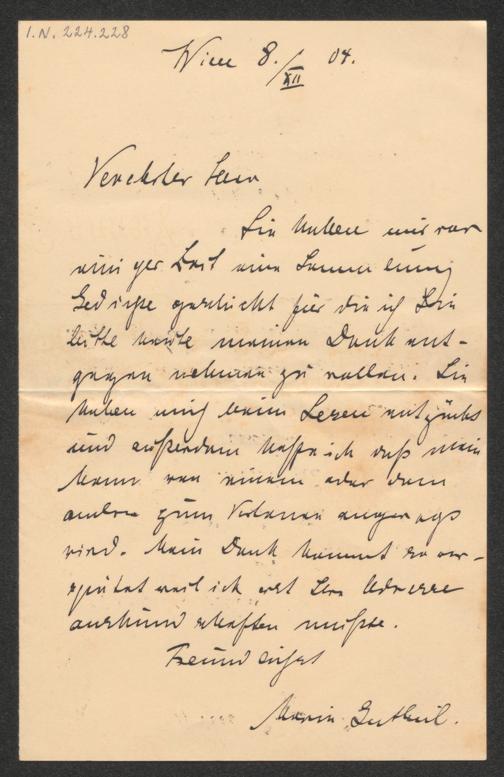 I.N. 224.228
Wien 8./XII 04.
Verehrter Herr
Sie haben mir vor
einiger Zeit eine Sammlung
Gedichte geschickt für die ich Sie
bitte heute meinen Dank ent-
gegen nehmen zu wollen. Sie
haben mich beim Lesen entzückt
und außerdem hoffe ich daß mein
Mann von einem oder dem
andren zum Vertonen angeregt
wird. Mein Dank kommt so ver-
spätet weil ich erst Ihre Adresse
auskundschaften mußte.
Freundlichst
Marie Gutheil.